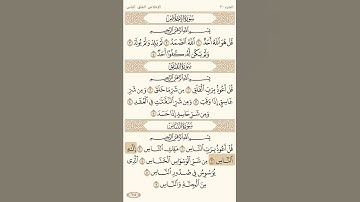 الجزء ٣٠ الإخلاص، الفلق، الناس
سورة الإخلاص
بسم الله الرحمن الرحيم
قُلْ هُوَ اللَّهُ أَحَدٌ ١ اللَّهُ الصَّمَدُ ٢ لَمْ يَلِدْ وَلَمْ يُولَدْ ٣
وَلَمْ يَكُن لَّهُ كُفُوًا أَحَدٌ ٤
سورة الفلق
بسم الله الرحمن الرحيم
قُلْ أَعُوذُ بِرَبِّ الْفَلَقِ ١ مِن شَرِّ مَا خَلَقَ ٢ وَمِن شَرِّ
غَاسِقٍ إِذَا وَقَبَ ٣ وَمِن شَرِّ النَّفَّاثَاتِ فِي الْعُقَدِ ٤
وَمِن شَرِّ حَاسِدٍ إِذَا حَسَدَ ٥
سورة الناس
بسم الله الرحمن الرحيم
قُلْ أَعُوذُ بِرَبِّ النَّاسِ ١ مَلِكِ النَّاسِ ٢ إِلَٰهِ
النَّاسِ ٣ مِن شَرِّ الْوَسْوَاسِ الْخَنَّاسِ ٤ الَّذِي
يُوَسْوِسُ فِي صُدُورِ النَّاسِ ٥
مِنَ الْجِنَّةِ وَالنَّاسِ ٦
٦٠٤